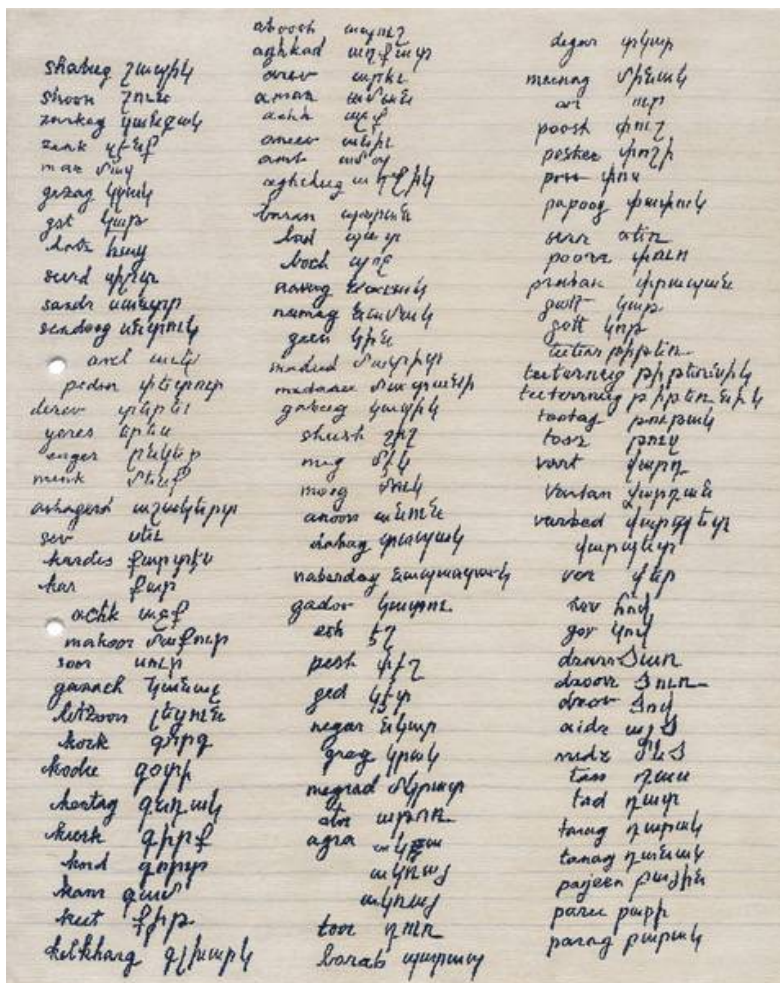 shabug շապիկ
shoon շուն
zankag զանգակ
zenk զէնք
mas մաս
gst կաթ
hatz հաց
sandr սանտր
sendoog սնտուկ
avel աւել
pedoor փետուր
derev տերեւ
yeres երես
enger ընկեր
menk մենք
ashagerd աշակերտ
sev սեւ
kardes քարտէս
kar քար
achk աչք
makoor մաքուր
soor սուր
ganach կանաչ
kork գորգ
kodie գօտի
kirk գիրք
kord գորտ
kam գամ
keet քիթ
kelkharg գլխարկ
aboosh ապուշ
aghkad աղքատ
arev արեւ
aman աման
achk աչք
amb ամպ
aghchig աղջիկ
baran պարան
bad պատ
boch պոչ
navag նաւակ
namag նամակ
geen կին
madid մատիտ
madanee մատանի
gabeeg կապիկ
shish շիշ
meg մէկ
moog մուկ
anoon անուն
dabag տապակ
nabasdag նապաստակ
gadoo կատու
esh էշ
pesh փէշ
ged կէտ
negar նկար
grag կրակ
megrad մկրատ
ator աթոռ
agra ակռա
ակռայ
ակռայ
toor դուռ
barab պարապ
degar տկար
meenag մինակ
poosh փուշ
poskee փոշի
por փոս
papoog փափուկ
poor փուռ
gath կաթ
goth կոթ
teeteर्nig թիթեռնիկ
teeternig թիթեռնիկ
tootag թութակ
vart վարդ
Vartan Վարդան
varbed վարպետ
վարպետ
ver վեր
hov հով
gov կով
dzar Ձառ
dzoor Ձուռ
dzov Ձով
aidz այձ
medz մեձ
tas դաս
tad դատ
tarag դարակ
tanag դանակ
parjeen
paree բարի
parag բարակ